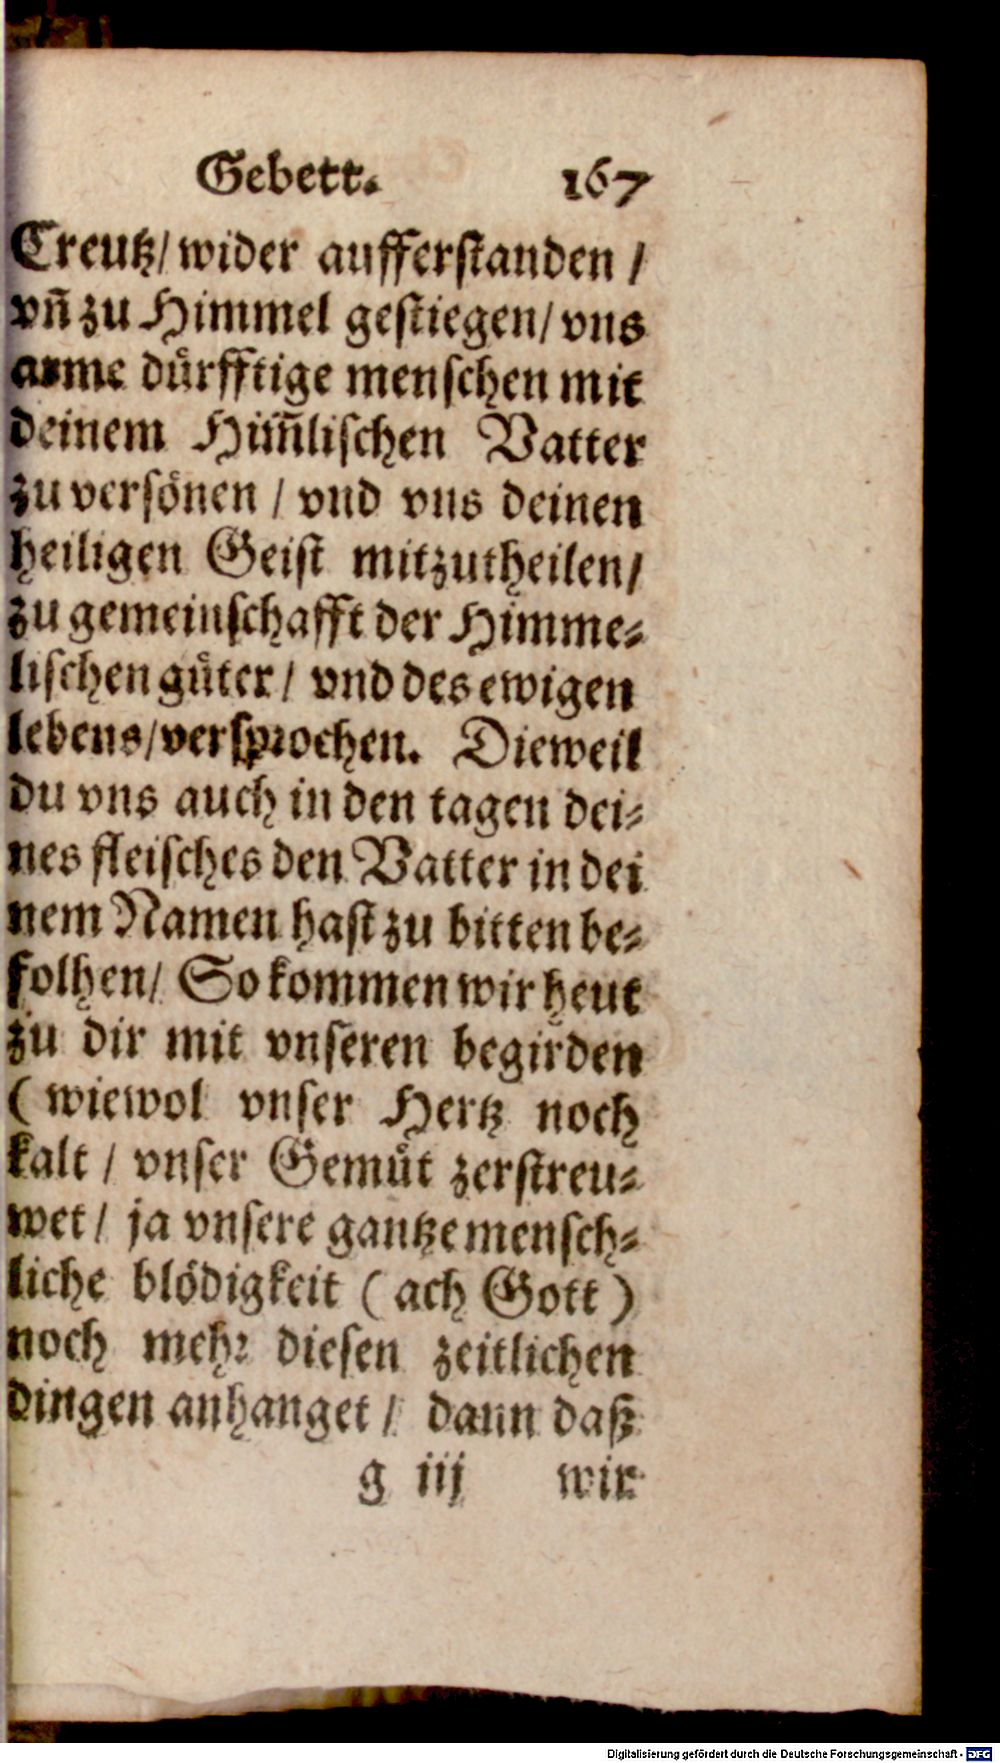 Gebett. 167
Creutz/ wider aufferstanden /
vñ zu Himmel gestiegen/ vns
arme dürfftige menschen mit
deinem Him̃lischen Vatter
zu versönen / vnd vns deinen
heiligen Geist mitzutheilen/
zu gemeinschafft der Himme-
lischen güter / vnd des ewigen
lebens/ versprochen. Dieweil
du vns auch in den tagen dei-
nes fleisches den Vatter in dei
nem Namen hast zu bitten be-
folhen/ So kommen wir heut
zu dir mit vnseren begirden
( wiewol vnser Hertz noch
kalt / vnser Gemüt zerstreu-
wet / ja vnsere gantze mensch-
liche blödigkeit ( ach Gott )
noch mehr diesen zeitlichen
dingen anhanget / dann daß
g iij wir
Digitalisierung gefördert durch die Deutsche Forschungsgemeinschaft - DFG